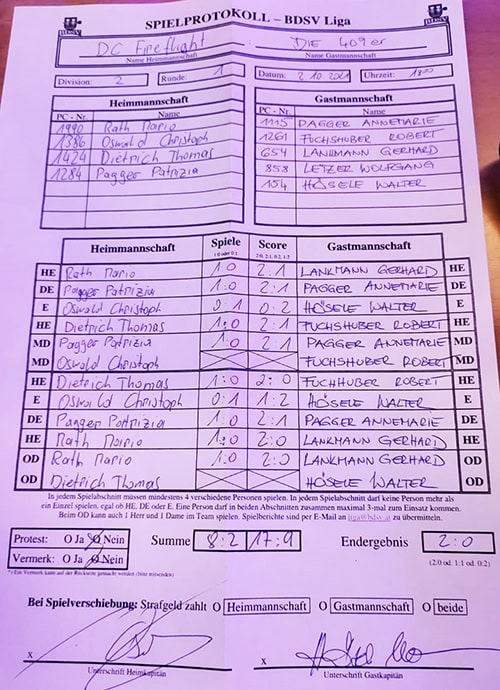 SPIELPROTOKOLL – BDSV Liga
DC Fireflight : DIE 409er
Name Heimmannschaft Name Gastmannschaft
Division: 2 Runde: 1 Datum: 2 10 2021 Uhrzeit: 1800
Heimmannschaft Gastmannschaft
PC - Nr. Name PC - Nr. Name
1990 Rath Mario 1115 PAGGER ANNEMARIE
1386 Oswald Christoph 1261 FUCHSHUBER ROBERT
1424 Dietrich Thomas 654 LANKMANN GERHARD
1284 Pagger Patrizia 858 LETZER WOLFGANG
154 HÖSELE WALTER
Heimmannschaft Spiele Score Gastmannschaft
1:0 oder 0:1 2:0, 2:1, 0:2, 1:2
HE Rath Mario 1:0 2:1 LANKMANN GERHARD HE
DE Pagger Patrizia 1:0 2:1 PAGGER ANNEMARIE DE
E Oswald Christoph 0:1 0:2 HÖSELE WALTER E
HE Dietrich Thomas 1:0 2:1 FUCHSHUBER ROBERT HE
MD Pagger Patrizia 1:0 2:1 PAGGER ANNEMARIE MD
MD Oswald Christoph FUCHSHUBER ROBERT MD
HE Dietrich Thomas 1:0 2:0 FUCHHUBER ROBERT HE
E Oswald Christoph 0:1 1:2 HÖSELE WALTER E
DE Pagger Patrizia 1:0 2:1 PAGGER ANNEMARIE DE
HE Rath Mario 1:0 2:0 LANKMANN GERHARD HE
OD Rath Mario 1:0 2:0 LANKMANN GERHARD OD
OD Dietrich Thomas HÖSELE WALTER OD
In jedem Spielabschnitt müssen mindestens 4 verschiedene Personen spielen. In jedem Spielabschnitt darf keine Person mehr als
ein Einzel spielen, egal ob HE, DE oder E. Eine Person darf in beiden Abschnitten zusammen maximal 3-mal zum Einsatz kommen.
Beim OD kann auch 1 Herr und 1 Dame im Team spielen. Spielberichte sind per E-Mail an liga@bdsv.at zu übermitteln.
Protest: O Ja O Nein Summe 8:2 17:9 Endergebnis 2:0
Vermerk: O Ja O Nein (2:0 od. 1:1 od. 0:2)
*) Ein Vermerk kann auf der Rückseite gemacht werden (bitte mitsenden)
Bei Spielverschiebung: Strafgeld zahlt O Heimmannschaft O Gastmannschaft O beide
x x
Unterschrift Heimkapitän Unterschrift Gastkapitän